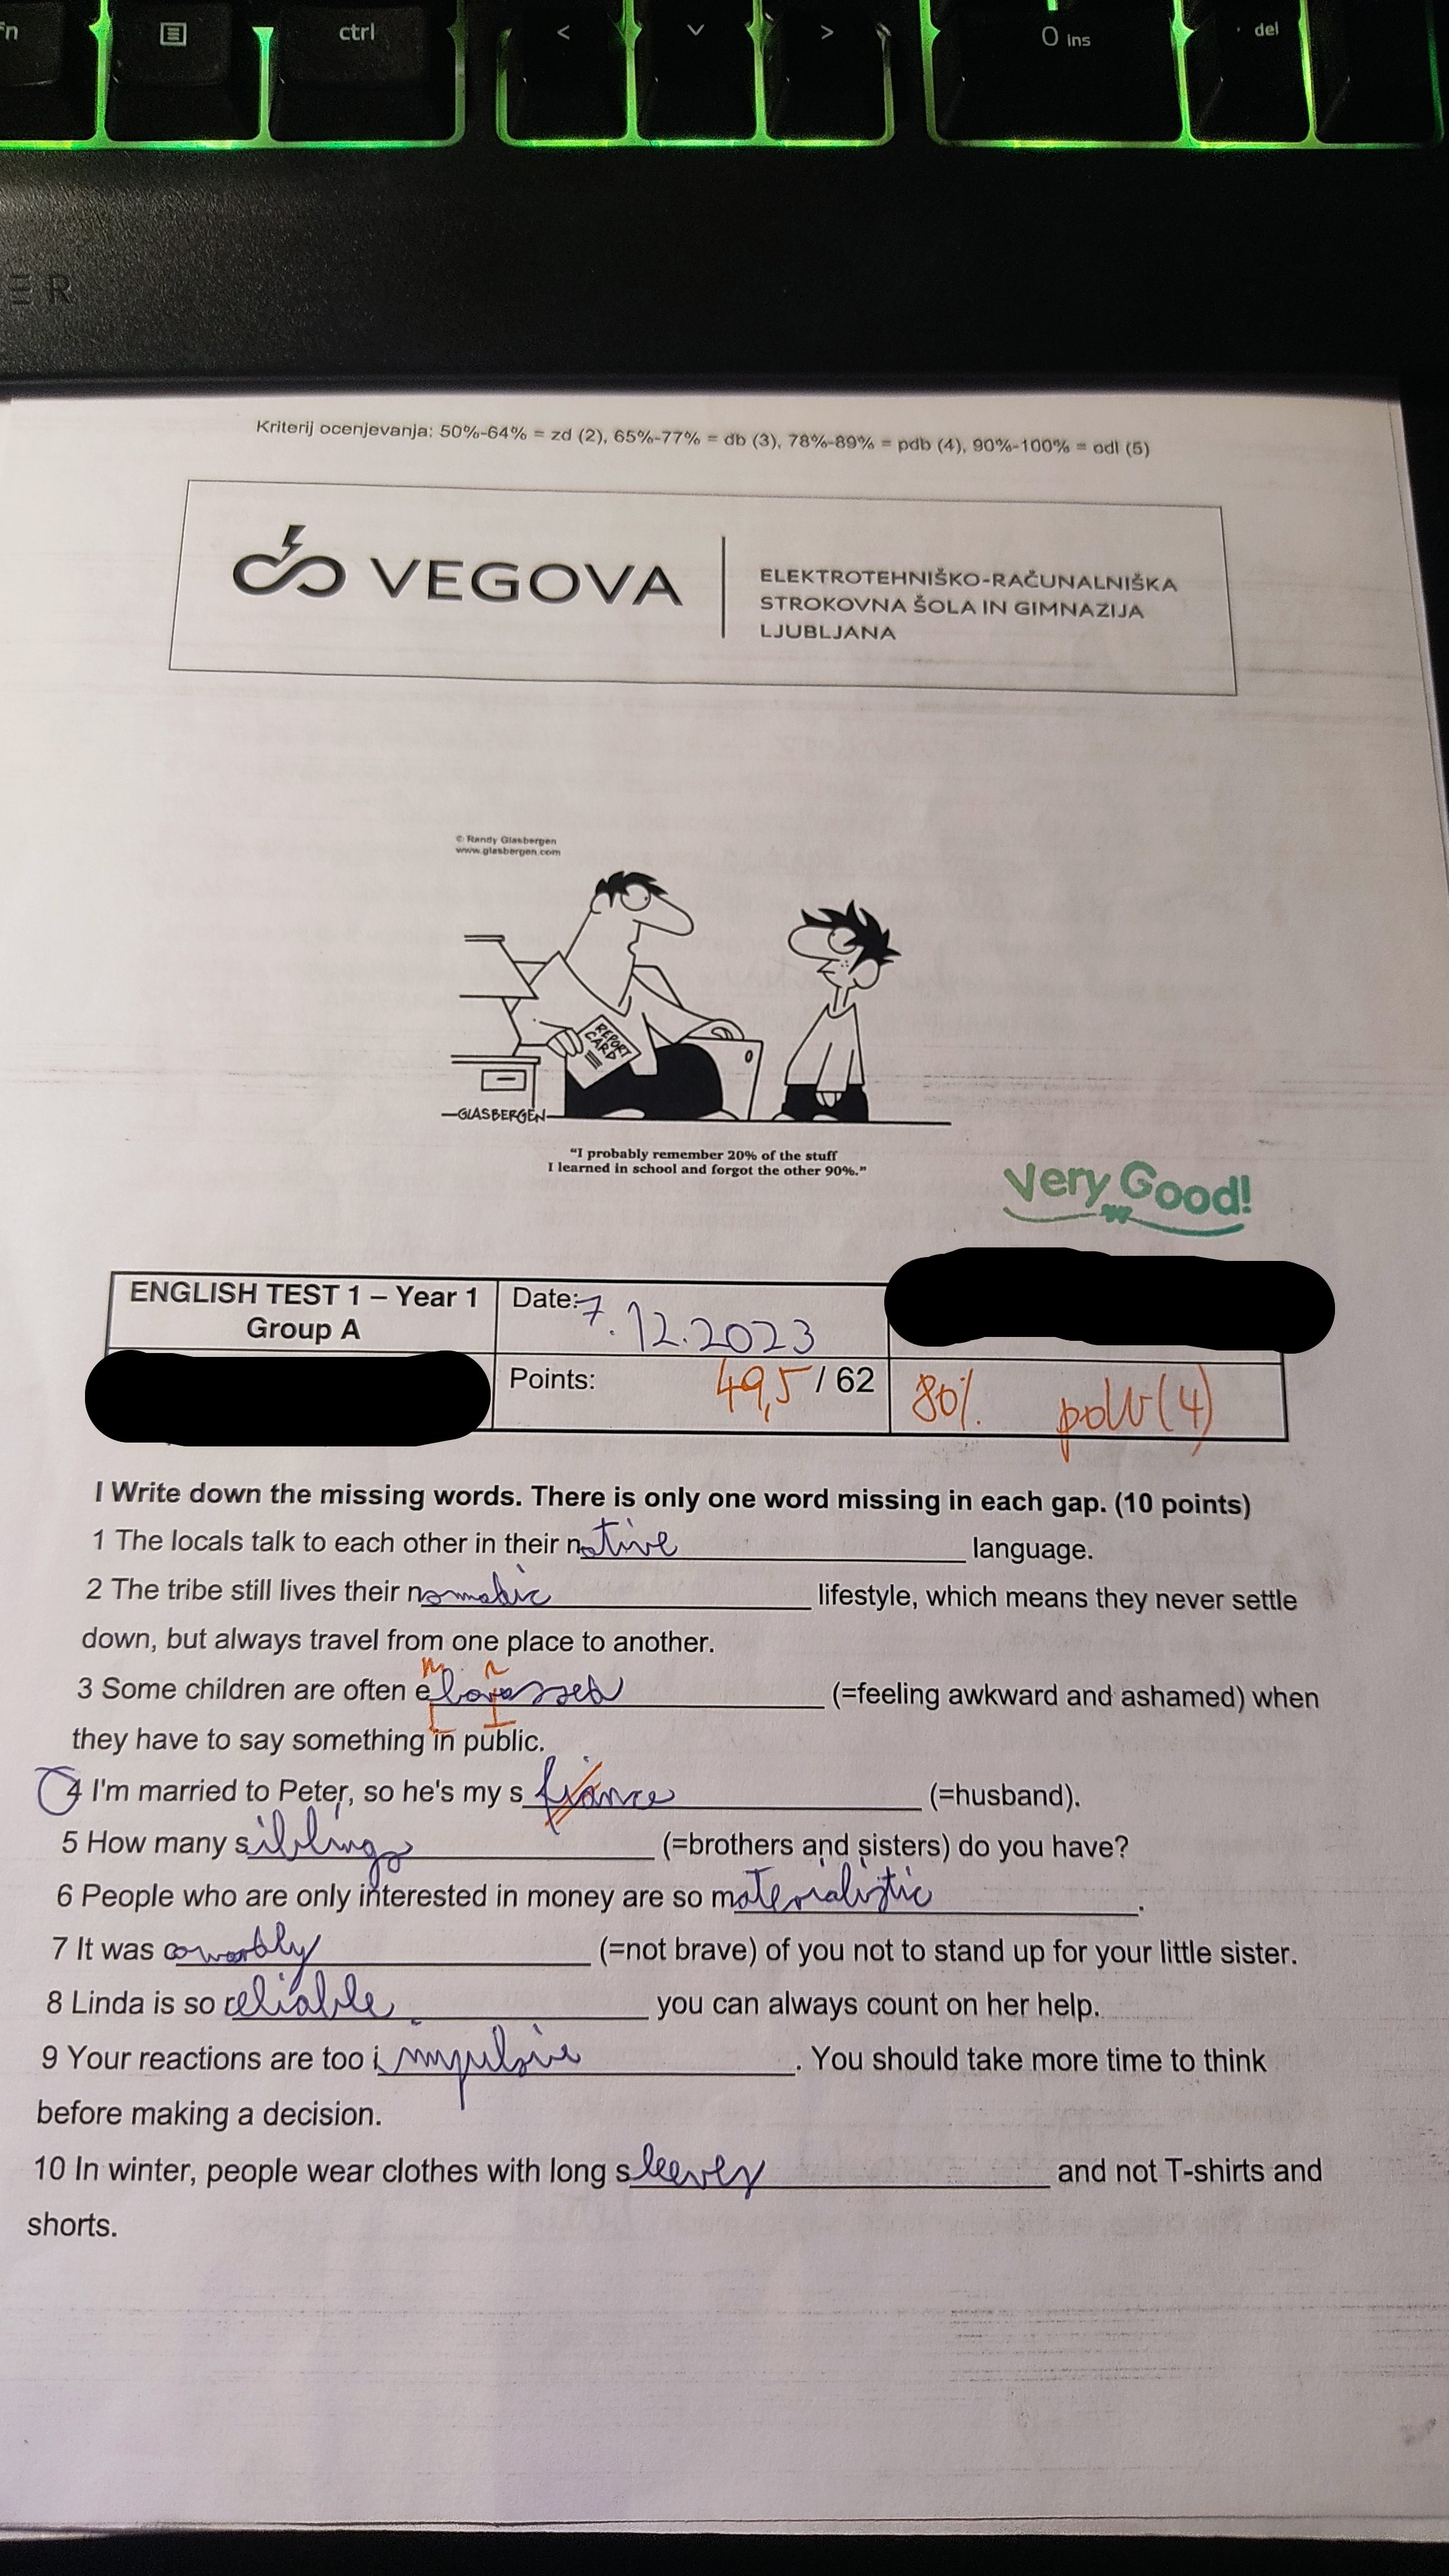 fn ctrl < ﹀ > 0 ins . del
ER
Kriterij ocenjevanja: 50%-64% = zd (2), 65%-77% = db (3), 78%-89% = pdb (4), 90%-100% = odl (5)
VEGOVA
ELEKTROTEHNIŠKO-RAČUNALNIŠKA
STROKOVNA ŠOLA IN GIMNAZIJA
LJUBLJANA
© Randy Glasbergen
www.glasbergen.com
REPORT
CARD
GLASBERGEN
"I probably remember 20% of the stuff
I learned in school and forgot the other 90%."
Very Good!
ENGLISH TEST 1 – Year 1
Group A
Date: 7.12.2023
Points: 49,5 / 62
80% pdb (4)
I Write down the missing words. There is only one word missing in each gap. (10 points)
1 The locals talk to each other in their native language.
2 The tribe still lives their nomadic lifestyle, which means they never settle
down, but always travel from one place to another.
m r
3 Some children are often ebarassed (=feeling awkward and ashamed) when
they have to say something in public.
4 I'm married to Peter, so he's my s fiance (=husband).
5 How many siblings (=brothers and sisters) do you have?
6 People who are only interested in money are so materialistic.
7 It was cowardly (=not brave) of you not to stand up for your little sister.
8 Linda is so reliable you can always count on her help.
9 Your reactions are too impulsive. You should take more time to think
before making a decision.
10 In winter, people wear clothes with long sleeves and not T-shirts and
shorts.